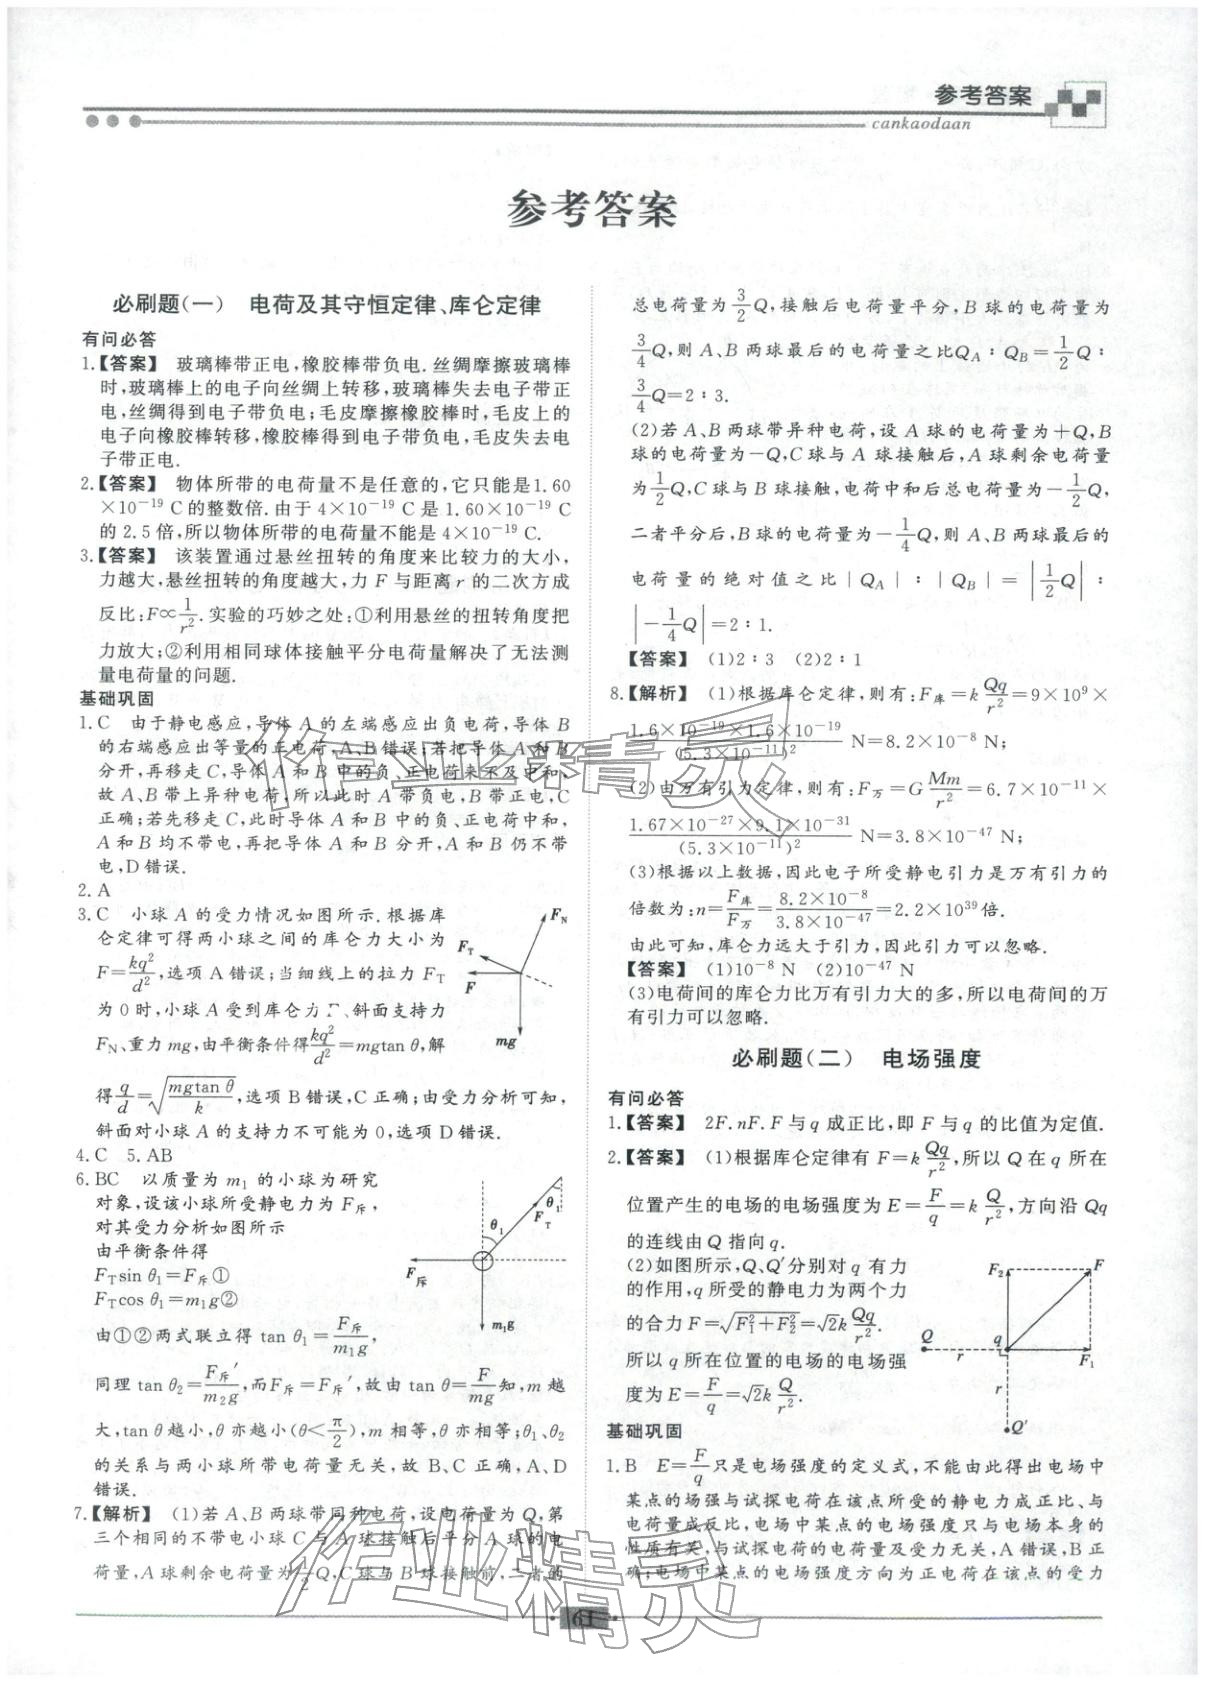 参考答案
cankaodaan
参考答案
必刷题(一) 电荷及其守恒定律、库仑定律
有问必答
1.【答案】 玻璃棒带正电,橡胶棒带负电.丝绸摩擦玻璃棒
时,玻璃棒上的电子向丝绸上转移,玻璃棒失去电子带正
电,丝绸得到电子带负电;毛皮摩擦橡胶棒时,毛皮上的
电子向橡胶棒转移,橡胶棒得到电子带负电,毛皮失去电
子带正电.
2.【答案】 物体所带的电荷量不是任意的,它只能是1.60
×10⁻¹⁹ C的整数倍.由于4×10⁻¹⁹ C是1.60×10⁻¹⁹ C
的2.5倍,所以物体所带的电荷量不能是4×10⁻¹⁹ C.
3.【答案】 该装置通过悬丝扭转的角度来比较力的大小,
力越大,悬丝扭转的角度越大,力F与距离r的二次方成
反比:F∝1/r².实验的巧妙之处:①利用悬丝的扭转角度把
力放大;②利用相同球体接触平分电荷量解决了无法测
量电荷量的问题.
基础巩固
1.C 由于静电感应,导体A的左端感应出负电荷,导体B
的右端感应出等量的正电荷,A、B错误;若把导体A和B
分开,再移走C,导体A和B中的负、正电荷来不及中和,
故A、B带上异种电荷,所以此时A带负电,B带正电,C
正确;若先移走C,此时导体A和B中的负、正电荷中和,
A和B均不带电,再把导体A和B分开,A和B仍不带
电,D错误.
2.A
3.C 小球A的受力情况如图所示.根据库
仑定律可得两小球之间的库仑力大小为
F=kq²/d²,选项A错误;当细线上的拉力F_T
为0时,小球A受到库仑力F、斜面支持力
F_N、重力mg,由平衡条件得kq²/d²=mgtan θ,解
得q/d=√(mgtan θ/k),选项B错误,C正确;由受力分析可知,
斜面对小球A的支持力不可能为0,选项D错误.
F_N
F_T
F
mg
4.C 5.AB
6.BC 以质量为m₁的小球为研究
对象,设该小球所受静电力为F斥,
对其受力分析如图所示
由平衡条件得
F_Tsin θ₁=F斥①
F_Tcos θ₁=m₁g②
由①②两式联立得tan θ₁=F斥/m₁g,
θ₁
θ₁
F_T
F斥
m₁g
同理tan θ₂=F斥′/m₂g,而F斥=F斥′,故由tan θ=F/mg知,m越
大,tan θ越小,θ亦越小(θ<π/2),m相等,θ亦相等;θ₁、θ₂
的关系与两小球所带电荷量无关,故B、C正确,A、D
错误.
7.【解析】 (1)若A、B两球带同种电荷,设电荷量为Q,第
三个相同的不带电小球C与A球接触后平分A球的电
荷量,A球剩余电荷量为1/2Q,C球与B球接触前,二者的
总电荷量为3/2Q,接触后电荷量平分,B球的电荷量为
3/4Q,则A、B两球最后的电荷量之比Q_A∶Q_B=1/2Q∶
3/4Q=2∶3.
(2)若A、B两球带异种电荷,设A球的电荷量为+Q,B
球的电荷量为-Q,C球与A球接触后,A球剩余电荷量
为1/2Q,C球与B球接触,电荷中和后总电荷量为-1/2Q,
二者平分后,B球的电荷量为-1/4Q,则A、B两球最后的
电荷量的绝对值之比|Q_A|∶|Q_B|=|1/2Q|∶
|-1/4Q|=2∶1.
【答案】 (1)2∶3 (2)2∶1
8.【解析】 (1)根据库仑定律,则有:F库=kQq/r²=9×10⁹×
1.6×10⁻¹⁹×1.6×10⁻¹⁹/(5.3×10⁻¹¹)² N=8.2×10⁻⁸ N;
(2)由万有引力定律,则有:F万=GMm/r²=6.7×10⁻¹¹×
1.67×10⁻²⁷×9.1×10⁻³¹/(5.3×10⁻¹¹)² N=3.8×10⁻⁴⁷ N;
(3)根据以上数据,因此电子所受静电引力是万有引力的
倍数为:n=F库/F万=8.2×10⁻⁸/3.8×10⁻⁴⁷=2.2×10³⁹倍.
由此可知,库仑力远大于引力,因此引力可以忽略.
【答案】 (1)10⁻⁸ N (2)10⁻⁴⁷ N
(3)电荷间的库仑力比万有引力大的多,所以电荷间的万
有引力可以忽略.
必刷题(二) 电场强度
有问必答
1.【答案】 2F.nF.F与q成正比,即F与q的比值为定值.
2.【答案】 (1)根据库仑定律有F=kQq/r²,所以Q在q所在
位置产生的电场的电场强度为E=F/q=kQ/r²,方向沿Qq
的连线由Q指向q.
(2)如图所示,Q、Q′分别对q有力
的作用,q所受的静电力为两个力
的合力F=√(F₁²+F₂²)=√2kQq/r².
所以q所在位置的电场的电场强
度为E=F/q=√2kQ/r².
F₂
F
Q
q
r
F₁
r
Q′
基础巩固
1.B E=F/q只是电场强度的定义式,不能由此得出电场中
某点的场强与试探电荷在该点所受的静电力成正比、与
电荷量成反比,电场中某点的电场强度只与电场本身的
性质有关,与试探电荷的电荷量及受力无关,A错误,B正
确;电场中某点的电场强度方向为正电荷在该点的受力
61
作业精灵
作业精灵